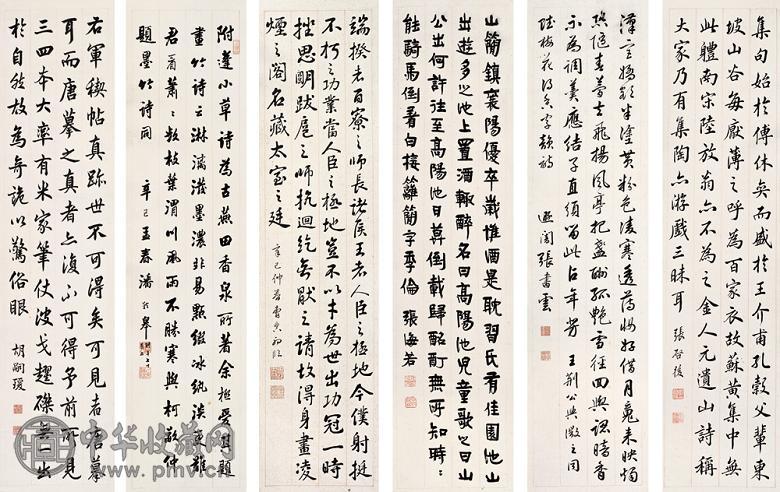 集句始於傅休奕而盛於王介甫孔毅父輩東
坡山谷每厭薄之呼為百家衣故蘇黃集中無
此體南宋陸放翁亦不為之金人元遺山詩稱
大家乃有集陶亦游戲三昧耳 張啟後
漢宮嬌額半塗黃粉色凌寒透薄妝好借月魂來映燭
恐隨春夢去飛揚風亭把盞酬孤艷雪徑回輿認暗香
不為調羹應結子直須留此占年芳 王荊公與微之同
賦梅花得香字韻詩 遜閣張書雲
山簡鎮襄陽優卒歲惟酒是耽習氏有佳園池山
出遊多之池上置酒輒醉名曰高陽池兒童歌之曰山
公出何許往至高陽池日莫倒載歸酩酊無所知時:
能騎馬倒著白接䍦簡字季倫 張海若
端揆者百寮之師長諸侯王者人臣之極地今僕射挺
不朽之功業當人臣之極地豈不以才為世出功冠一時
挫思明跋扈之師抗迴紇無厭之請故得身畫凌
煙之閣名藏太室之廷 辛巳仲春曹典初臨
附蓬小草詩為古燕田香泉所著余極愛其題
畫竹詩云淋漓潑墨濃非易點綴冰紈淡更難
君看蕭蕭數枝葉渭川風雨不勝寒與柯敬仲
題墨竹詩同 辛巳孟春潘齡皋
右軍禊帖真跡世不可得矣可見者唐摹
耳而唐摹之真者亦復不可得予前所見
三四本大率有米家筆仗波戈趯磔無一出
於自然故為奇詭以驚俗眼 胡嗣瑗
中华收藏网
www.pmhv.cn